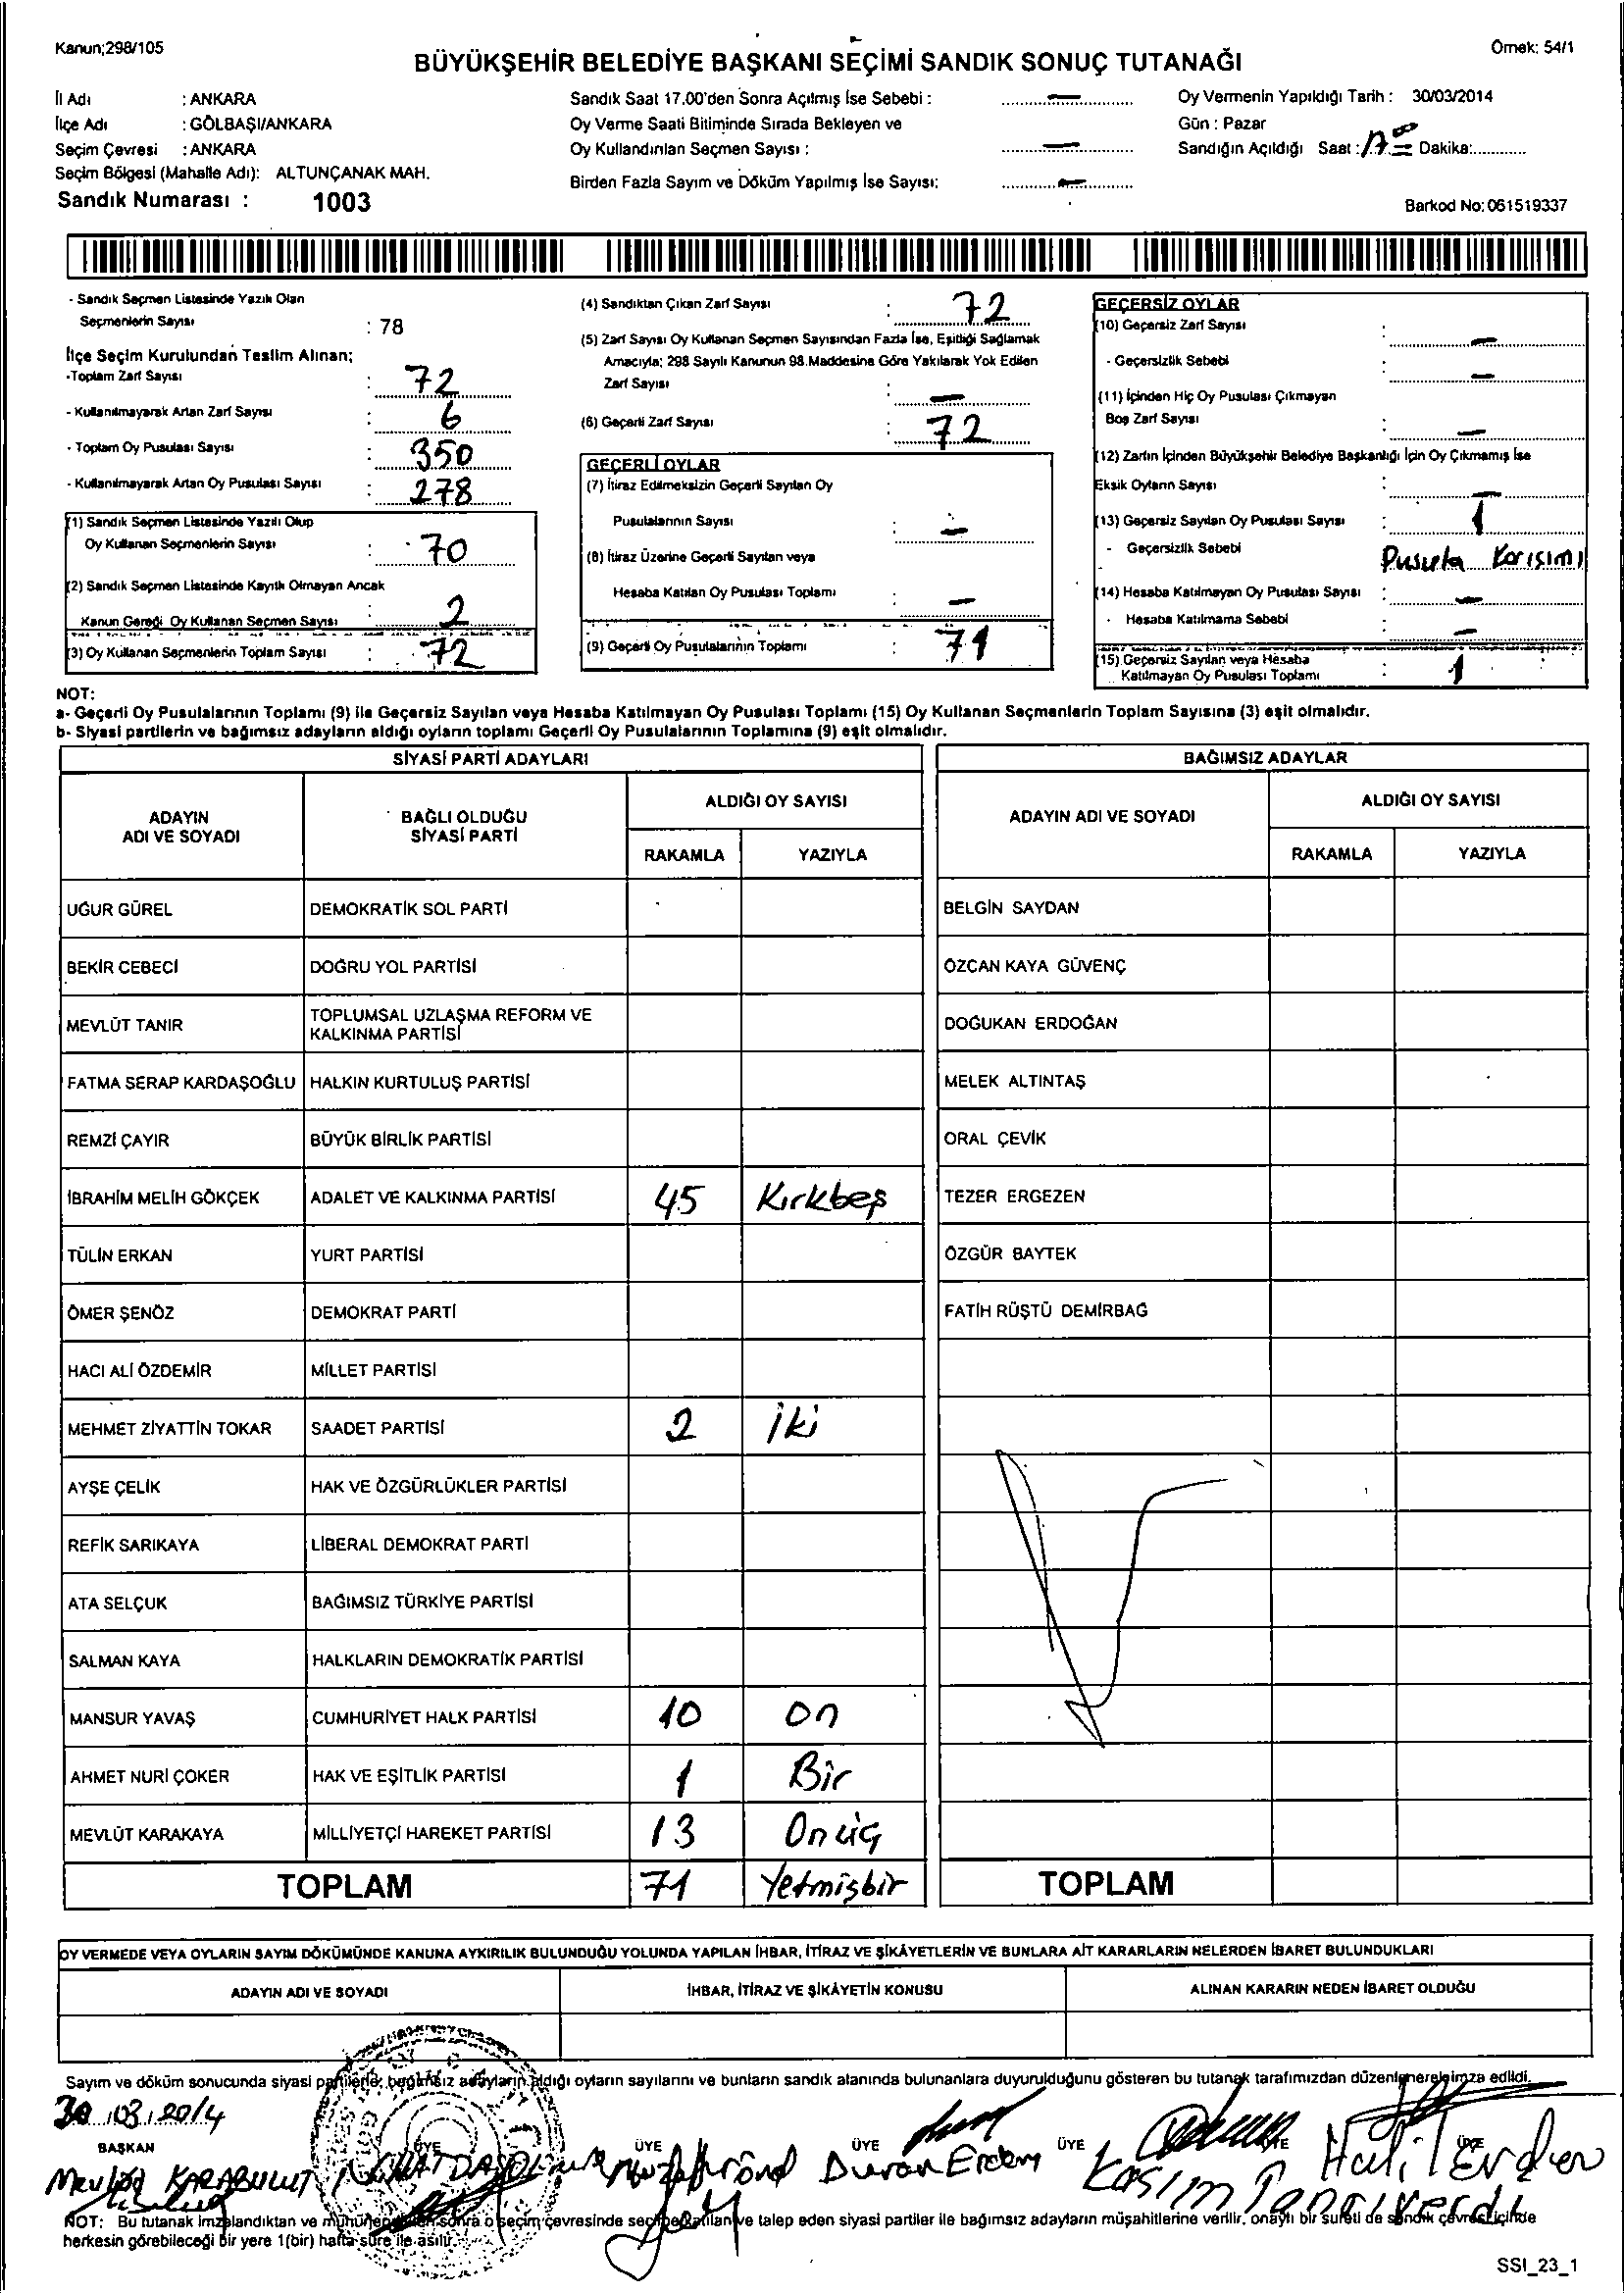 Kanun;298/105
Örnek: 54/1
BÜYÜKŞEHİR BELEDİYE BAŞKANI SEÇİMİ SANDIK SONUÇ TUTANAĞI
İl Adı : ANKARA
İlçe Adı : GÖLBAŞI/ANKARA
Seçim Çevresi : ANKARA
Seçim Bölgesi (Mahalle Adı): ALTUNÇANAK MAH.
Sandık Numarası : 1003
Sandık Saat 17.00'den Sonra Açılmış İse Sebebi : —
Oy Verme Saati Bitiminde Sırada Bekleyen ve
Oy Kullandırılan Seçmen Sayısı : —
Birden Fazla Sayım ve Döküm Yapılmış İse Sayısı: —
Oy Vermenin Yapıldığı Tarih : 30/03/2014
Gün : Pazar
Sandığın Açıldığı Saat : Dakika:
Barkod No: 061519337
- Sandık Seçmen Listesinde Yazılı Olan
Seçmenlerin Sayısı : 78
İlçe Seçim Kurulundan Teslim Alınan;
-Toplam Zarf Sayısı : 72
- Kullanılmayarak Artan Zarf Sayısı : 6
- Toplam Oy Pusulası Sayısı : 350
- Kullanılmayarak Artan Oy Pusulası Sayısı : 278
(1) Sandık Seçmen Listesinde Yazılı Olup
Oy Kullanan Seçmenlerin Sayısı : 70
(2) Sandık Seçmen Listesinde Kayıtlı Olmayan Ancak
Kanun Gereği Oy Kullanan Seçmen Sayısı : 2
(3) Oy Kullanan Seçmenlerin Toplam Sayısı : 72
(4) Sandıktan Çıkan Zarf Sayısı : 72
(5) Zarf Sayısı Oy Kullanan Seçmen Sayısından Fazla İse, Eşitliği Sağlamak
Amacıyla; 298 Sayılı Kanunun 98.Maddesine Göre Yakılarak Yok Edilen
Zarf Sayısı : —
(6) Geçerli Zarf Sayısı : 72
GEÇERLİ OYLAR
(7) İtiraz Edilmeksizin Geçerli Sayılan Oy
Pusulalarının Sayısı : —
(8) İtiraz Üzerine Geçerli Sayılan veya
Hesaba Katılan Oy Pusulası Toplamı : —
(9) Geçerli Oy Pusulalarının Toplamı : 71
GEÇERSİZ OYLAR
(10) Geçersiz Zarf Sayısı : —
- Geçersizlik Sebebi : —
(11) İçinden Hiç Oy Pusulası Çıkmayan
Boş Zarf Sayısı : —
(12) Zarfın İçinden Büyükşehir Belediye Başkanlığı İçin Oy Çıkmamış İse
Eksik Oyların Sayısı : —
(13) Geçersiz Sayılan Oy Pusulası Sayısı : 1
- Geçersizlik Sebebi Pusula Karışımı
(14) Hesaba Katılmayan Oy Pusulası Sayısı : —
- Hesaba Katılmama Sebebi : —
(15) Geçersiz Sayılan veya Hesaba
Katılmayan Oy Pusulası Toplamı : 1
NOT:
a- Geçerli Oy Pusulalarının Toplamı (9) ile Geçersiz Sayılan veya Hesaba Katılmayan Oy Pusulası Toplamı (15) Oy Kullanan Seçmenlerin Toplam Sayısına (3) eşit olmalıdır.
b- Siyasi partilerin ve bağımsız adayların aldığı oyların toplamı Geçerli Oy Pusulalarının Toplamına (9) eşit olmalıdır.
SİYASİ PARTİ ADAYLARI
ADAYIN ADI VE SOYADI BAĞLI OLDUĞU SİYASİ PARTİ ALDIĞI OY SAYISI
RAKAMLA YAZIYLA
UĞUR GÜREL DEMOKRATİK SOL PARTİ
BEKİR CEBECİ DOĞRU YOL PARTİSİ
MEVLÜT TANIR TOPLUMSAL UZLAŞMA REFORM VE
KALKINMA PARTİSİ
FATMA SERAP KARDAŞOĞLU HALKIN KURTULUŞ PARTİSİ
REMZİ ÇAYIR BÜYÜK BİRLİK PARTİSİ
İBRAHİM MELİH GÖKÇEK ADALET VE KALKINMA PARTİSİ 45 Kırkbeş
TÜLİN ERKAN YURT PARTİSİ
ÖMER ŞENÖZ DEMOKRAT PARTİ
HACI ALİ ÖZDEMİR MİLLET PARTİSİ
MEHMET ZİYATTİN TOKAR SAADET PARTİSİ 2 iki
AYŞE ÇELİK HAK VE ÖZGÜRLÜKLER PARTİSİ
REFİK SARIKAYA LİBERAL DEMOKRAT PARTİ
ATA SELÇUK BAĞIMSIZ TÜRKİYE PARTİSİ
SALMAN KAYA HALKLARIN DEMOKRATİK PARTİSİ
MANSUR YAVAŞ CUMHURİYET HALK PARTİSİ 10 On
AHMET NURİ ÇOKER HAK VE EŞİTLİK PARTİSİ 1 Bir
MEVLÜT KARAKAYA MİLLİYETÇİ HAREKET PARTİSİ 13 Onüç
TOPLAM 71 Yetmişbir
BAĞIMSIZ ADAYLAR
ADAYIN ADI VE SOYADI ALDIĞI OY SAYISI
RAKAMLA YAZIYLA
BELGİN SAYDAN
ÖZCAN KAYA GÜVENÇ
DOĞUKAN ERDOĞAN
MELEK ALTINTAŞ
ORAL ÇEVİK
TEZER ERGEZEN
ÖZGÜR BAYTEK
FATİH RÜŞTÜ DEMİRBAĞ
TOPLAM
OY VERMEDE VEYA OYLARIN SAYIM DÖKÜMÜNDE KANUNA AYKIRILIK BULUNDUĞU YOLUNDA YAPILAN İHBAR, İTİRAZ VE ŞİKÂYETLERİN VE BUNLARA AİT KARARLARIN NELERDEN İBARET BULUNDUKLARI
ADAYIN ADI VE SOYADI İHBAR, İTİRAZ VE ŞİKÂYETİN KONUSU ALINAN KARARIN NEDEN İBARET OLDUĞU
Sayım ve döküm sonucunda siyasi partilerle, bağımsız adayların aldığı oyların sayılarını ve bunların sandık alanında bulunanlara duyurulduğunu gösteren bu tutanak tarafımızdan düzenlenerek imza edildi.
30.03.2014
BAŞKAN ÜYE ÜYE ÜYE ÜYE ÜYE
KARABULUT Duran Erdem Kasım Tanrıverdi Halil Erden
NOT: Bu tutanak imzalandıktan ve mühürlendikten sonra o seçim çevresinde seçime katılan ve talep eden siyasi partiler ile bağımsız adayların müşahitlerine verilir, onaylı bir sureti de sandık çevresi içinde
herkesin görebileceği bir yere 1(bir) hafta süre ile asılır.
SSI_23_1